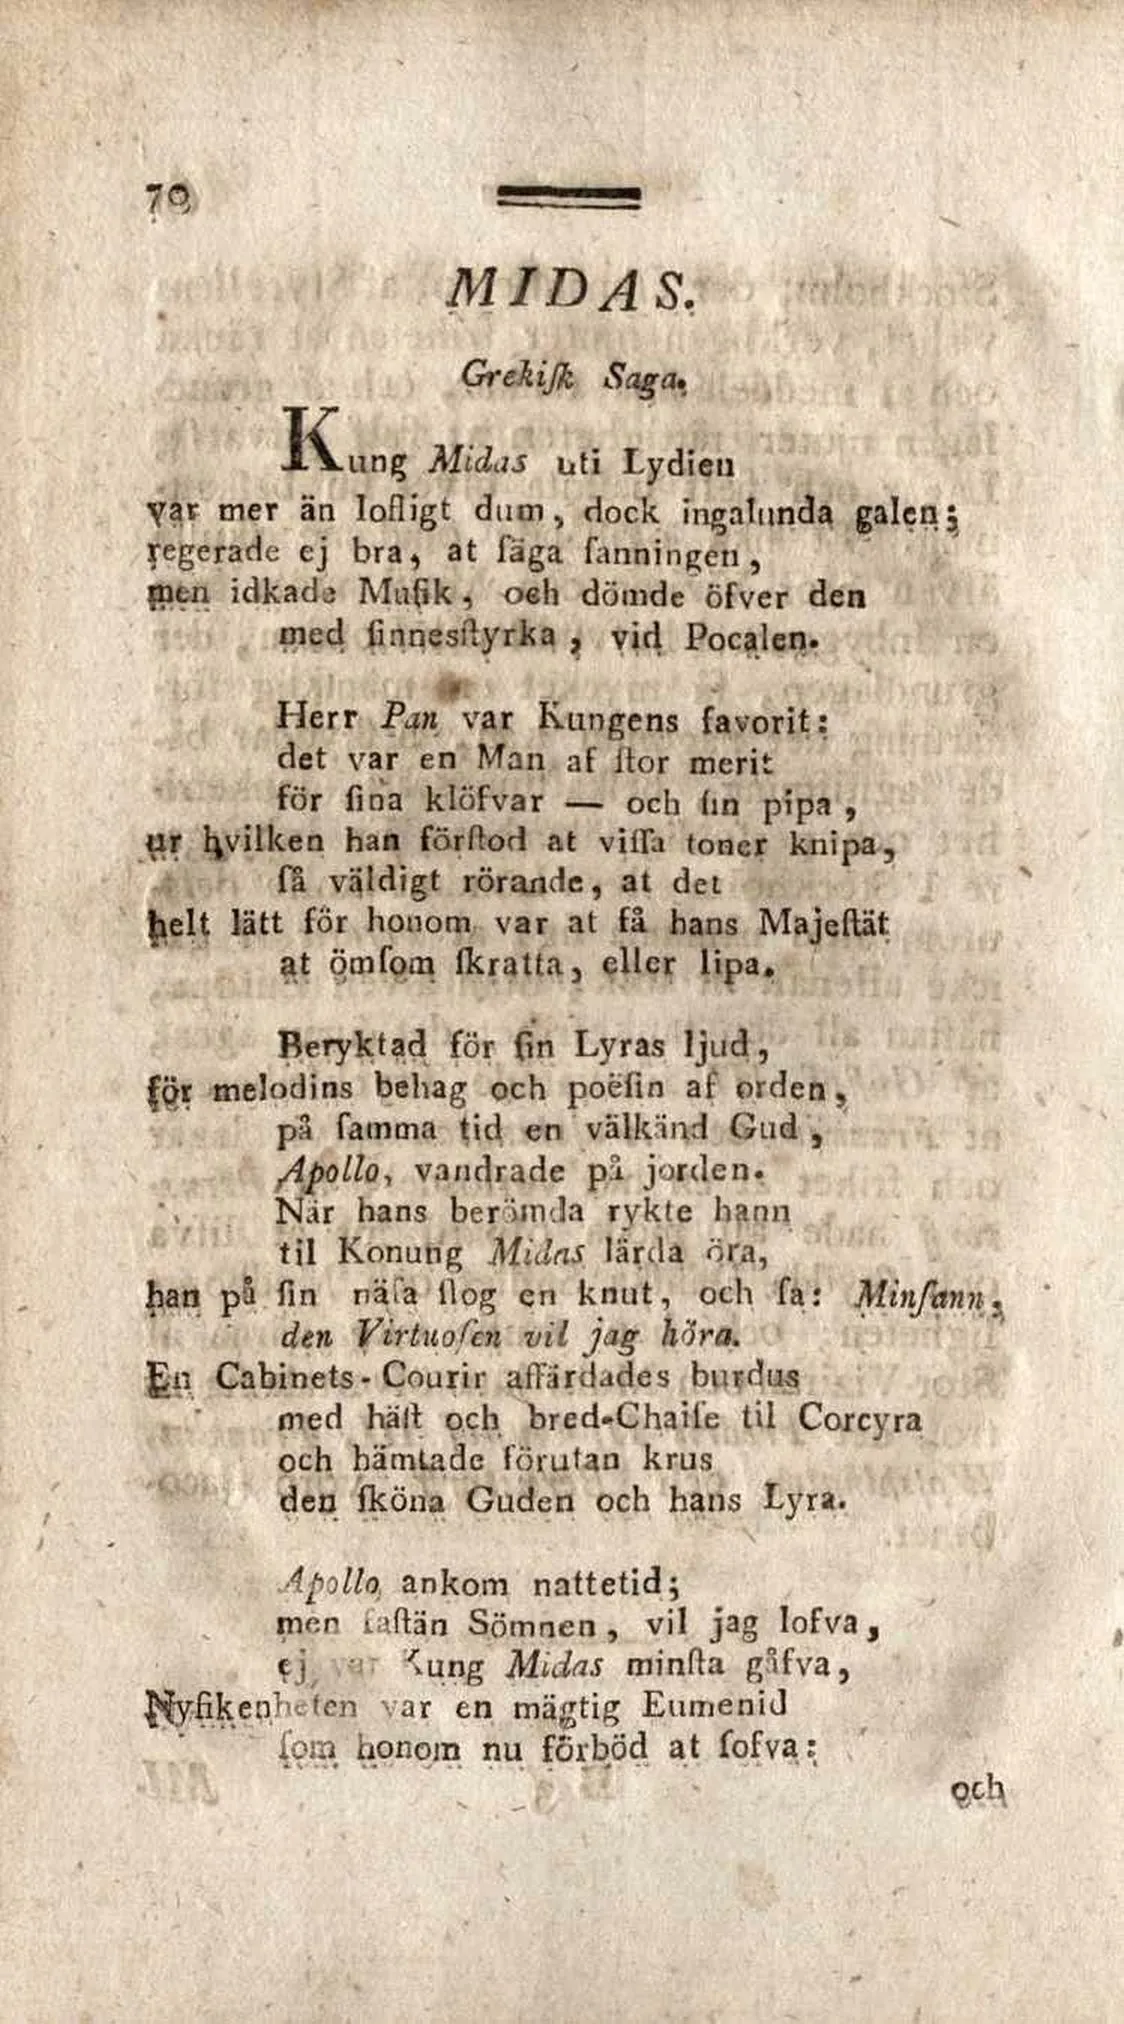 70
MIDAS.
Grekiſk Saga.
Kung Midas uti Lydien
var mer än lofligt dum, dock ingalunda galen;
regerade ej bra, at ſäga ſanningen,
men idkade Muſik, och dömde öfver den
med ſinnesſtyrka, vid Pocalen.
Herr Pan var Kungens favorit:
det var en Man af ſtor merit
för ſina klöfvar — och ſin pipa,
ur hvilken han förſtod at viſſa toner knipa,
ſå väldigt rörande, at det
helt lätt för honom var at få hans Majeſtät
at ömſom ſkratta, eller lipa.
Beryktad för ſin Lyras ljud,
för melodins behag och poëſin af orden,
på ſamma tid en välkänd Gud,
Apollo, vandrade på jorden.
När hans berömda rykte hann
til Konung Midas lärda öra,
han på ſin näſa ſlog en knut, och ſa: Minſann,
den Virtuoſen vil jag höra.
En Cabinets-Courir affärdades burdus
med häſt och bred-Chaiſe til Corcyra
och hämtade förutan krus
den ſköna Guden och hans Lyra.
Apollo ankom nattetid;
men faſtän Sömnen, vil jag lofva,
ej var Kung Midas minſta gåfva,
Nyfikenheten var en mägtig Eumenid
ſom honom nu förböd at ſofva:
och